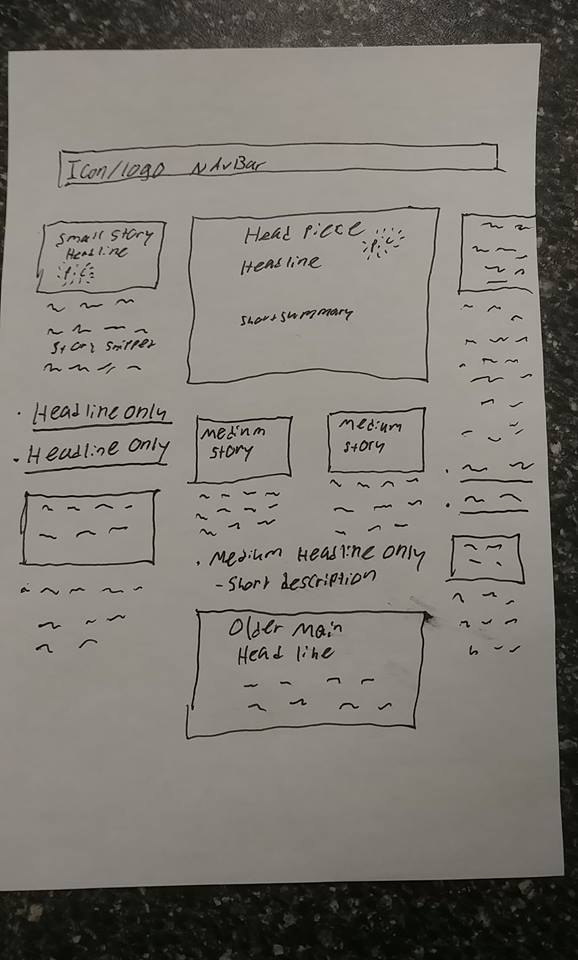 Icon/logo NAvBar
Small Story
Headline
Pic
Story Snippet
Headline only
Headline Only
Head Piece
Pic
Headline
Short summary
Medium
Story
Medium
Story
Medium Headline Only
- Short description
Older Main
Head line